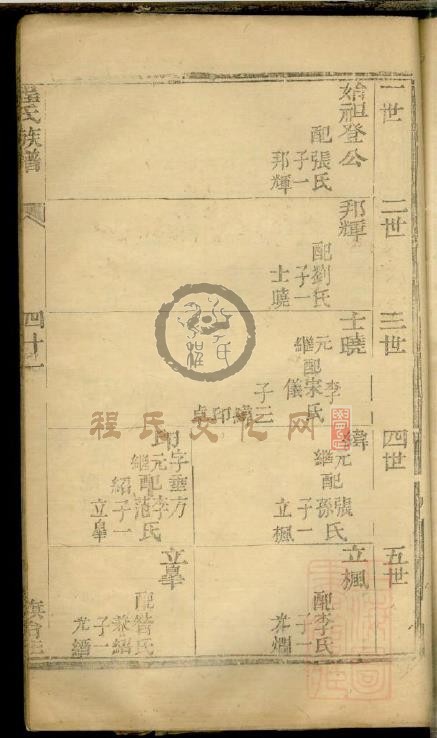 一世
始祖登公
配張氏
子一
邦輝
二世
邦輝
配劉氏
子一
士曉
三世
士曉
元配宋氏
繼李氏
子三
緯 印 貞
四世
緯
元配張氏
繼孫氏
子一
立楓
印字垂方
元配李氏
繼范氏
紹子一
立皐
五世
立楓
配李氏
子一
立皐
配管氏
兼紹
子一
程氏族譜
四十一
程氏文化网